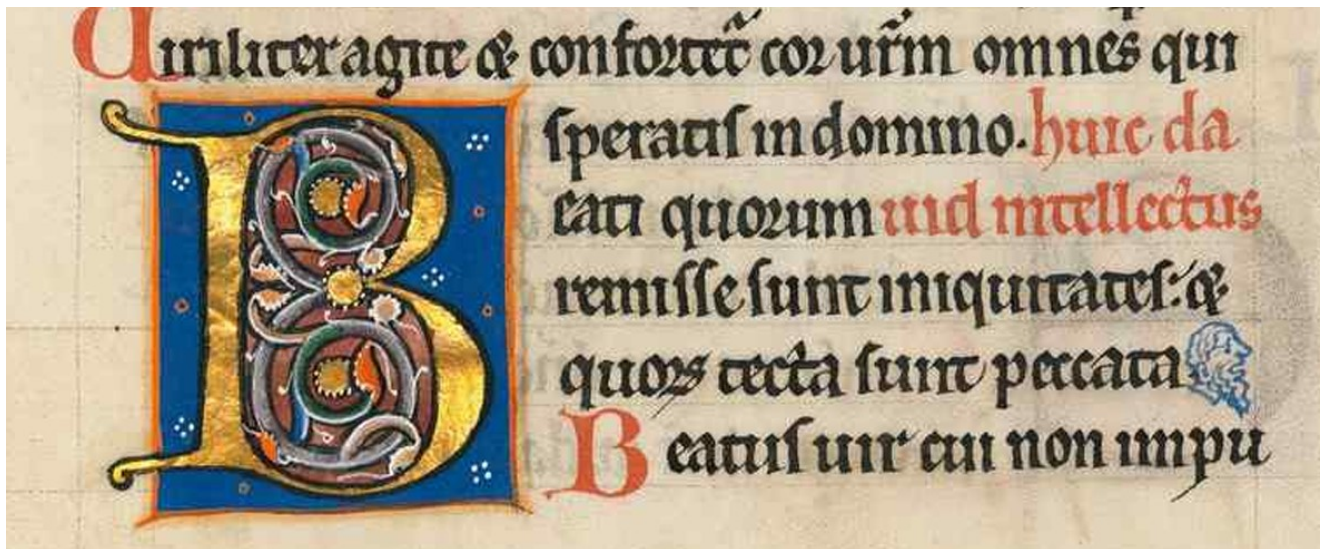 Uiriliter agite & confortet̃ cor ur̃m omnes qui
speratis in domino. huic da
Beati quorum uid intellectus
remisse sunt iniquitates: &
quoꝝ tecta sunt peccata
Beatus uir cui non impu